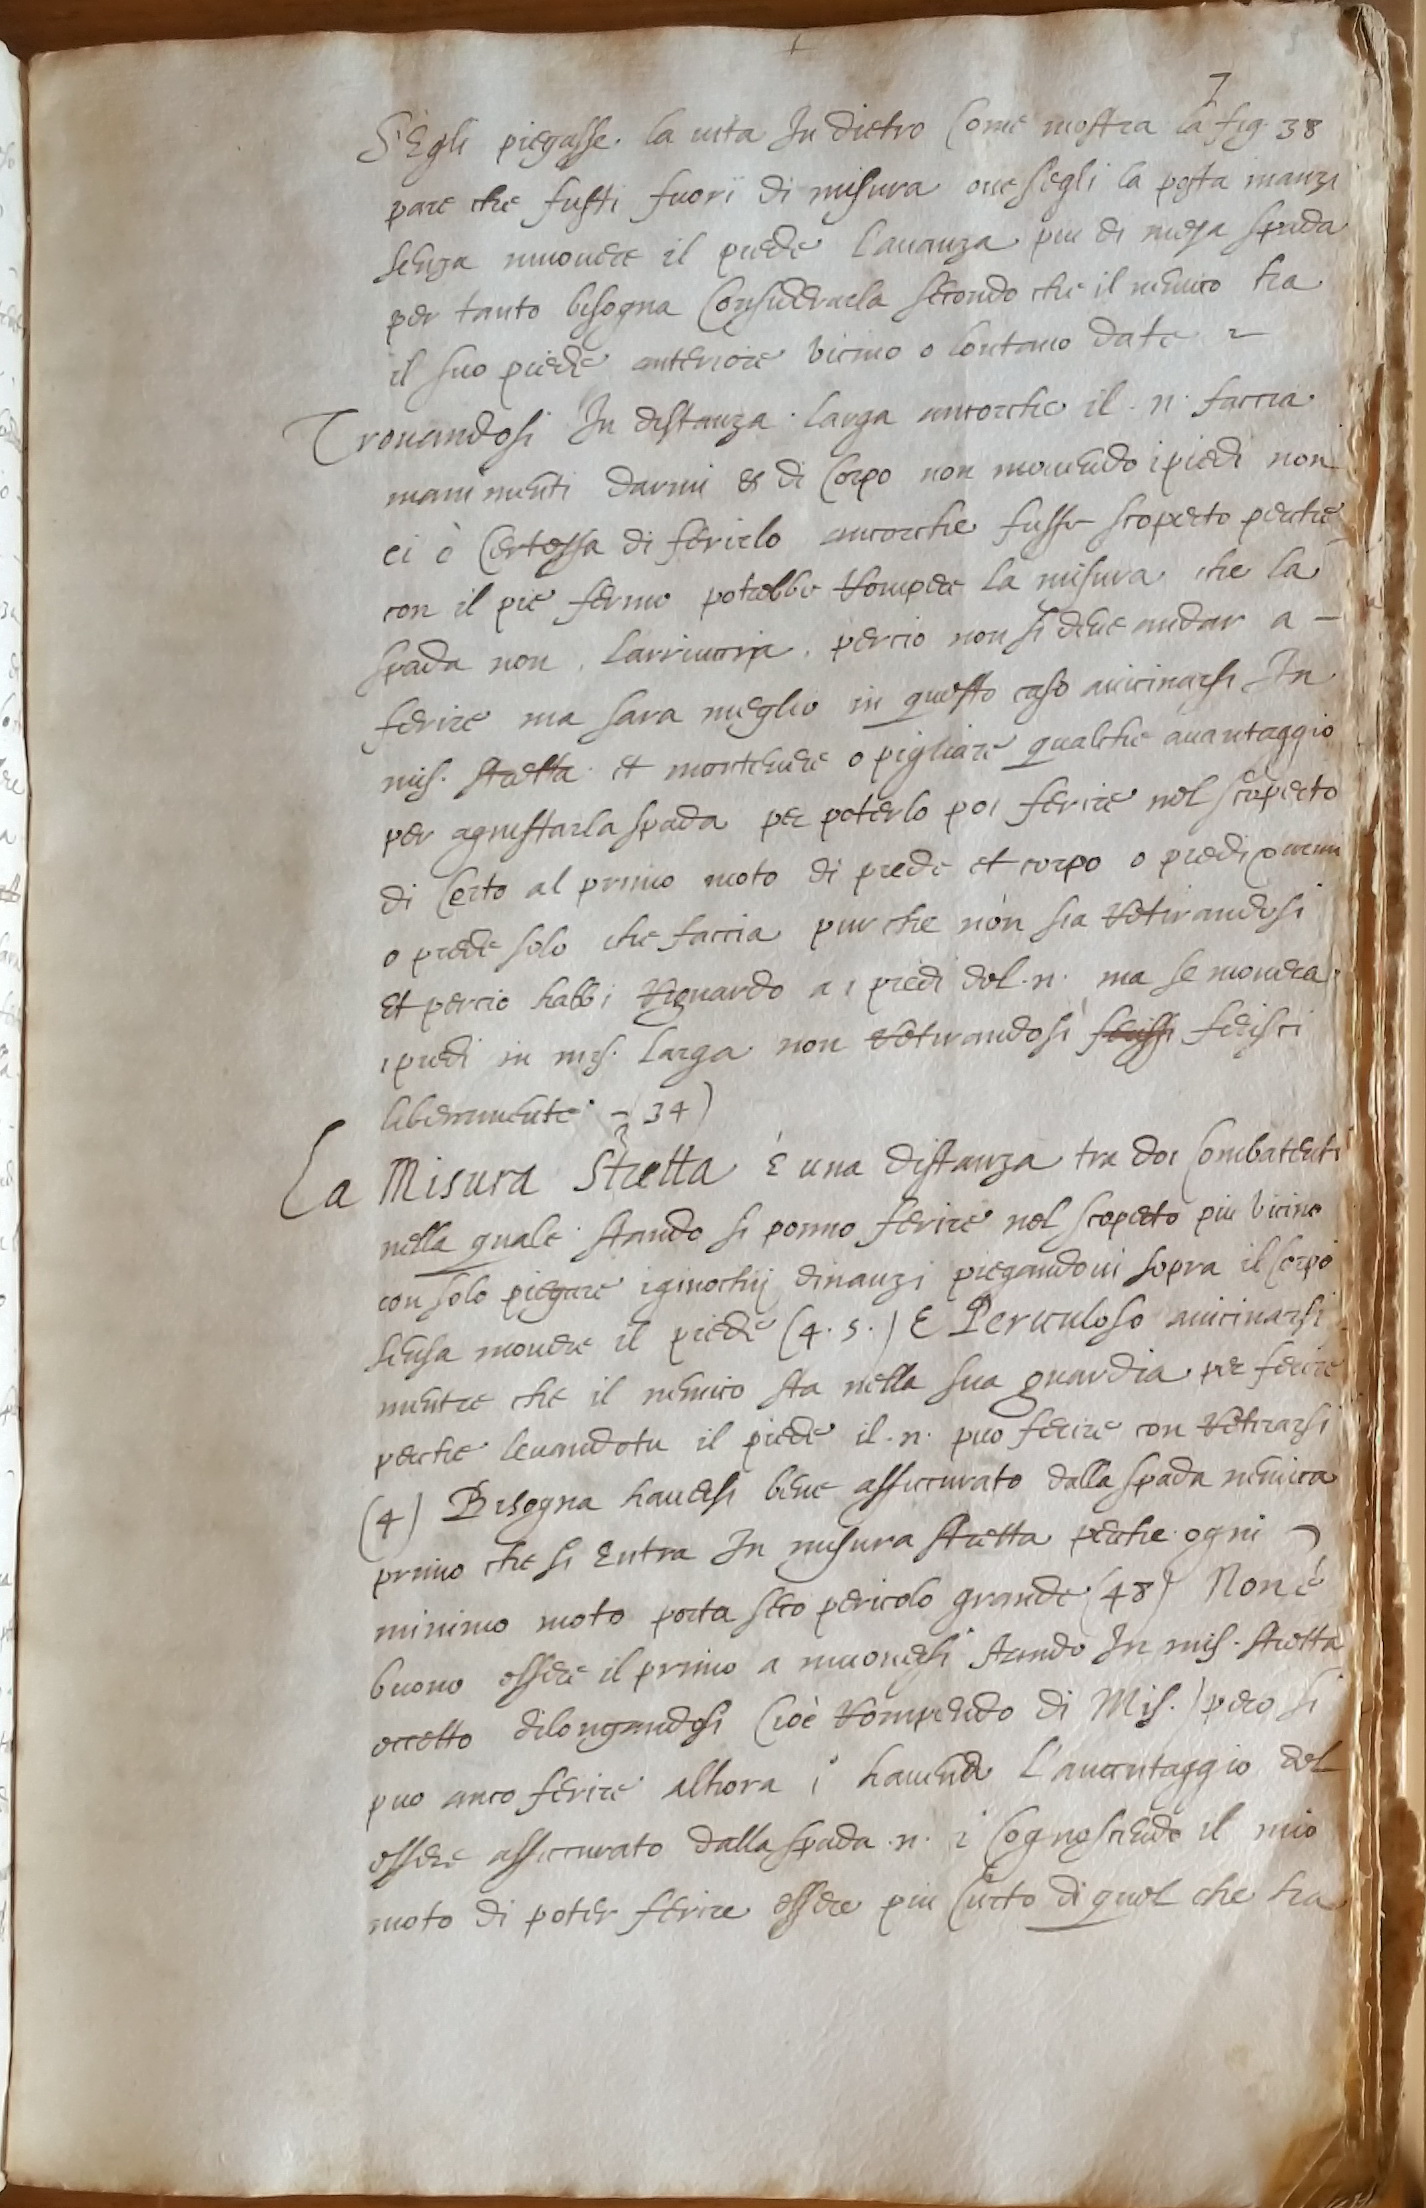 7
S'Egli piegasse la uita In dietro Come mostra la fig. 38
pare che fusti fuori di misura oue s'egli la porta inanzi
senza muouere il piede l'auanza piu di meza spada
per tanto bisogna Considerarla secondo che il nemico ha
il suo piede anteriore vicino o lontano da te
Trouandosi In distanza larga ancorche il .n. faccia
mouimenti darmi et di Corpo non mouendo i piedi non
ci è Certessa di ferirlo ancorche fusse scoperto perche
con il pie fermo potrebbe Rompere la misura che la
spada non l'arriuaria . percio non si deue andar a -
ferire ma sara meglio in questo caso auicinarsi In
mis. stretta et mantenere o pigliare qualche auantaggio
per agiustar la spada per poterlo poi ferire nel scoperto
di Certo al primo moto di piede et corpo o piedi armi
o piede solo che faccia pur che non sia Retirandosi
et percio habbi Riguardo a i piedi del .n. ma se mouera
i piedi in mis. larga non Retirandosi ferissi ferisci
liberamente - 34)
La Misura Stretta è una distanza tra doi Combatenti
nella quale stando si ponno ferire nel scoperto piu vicino
con solo piegare i ginochij dinanzi piegandoui sopra il Corpo
sensa mouere il piede (4. 5.) E Periculoso auicinarsi
mentre che il nemico sta nella sua guardia per ferire
perche leuando tu il piede il .n. puo ferire con Retirarsi
(4) Bisogna hauersi bene assiccurato dalla spada nemica
primo che si Entra In misura stretta perche ogni
minimo moto porta seco pericolo grande (48) Non è
buono essere il primo a muouersi stando In mis. stretta
eccetto dilongandosi (cioè Rompendo di Mis.) pero si
puo anco ferire alhora i hauend l'auantaggio del
essere assiccurato dalla spada .n. 2 Cognoscendo il mio
moto di poter ferire essere piu Curto di quel che ha